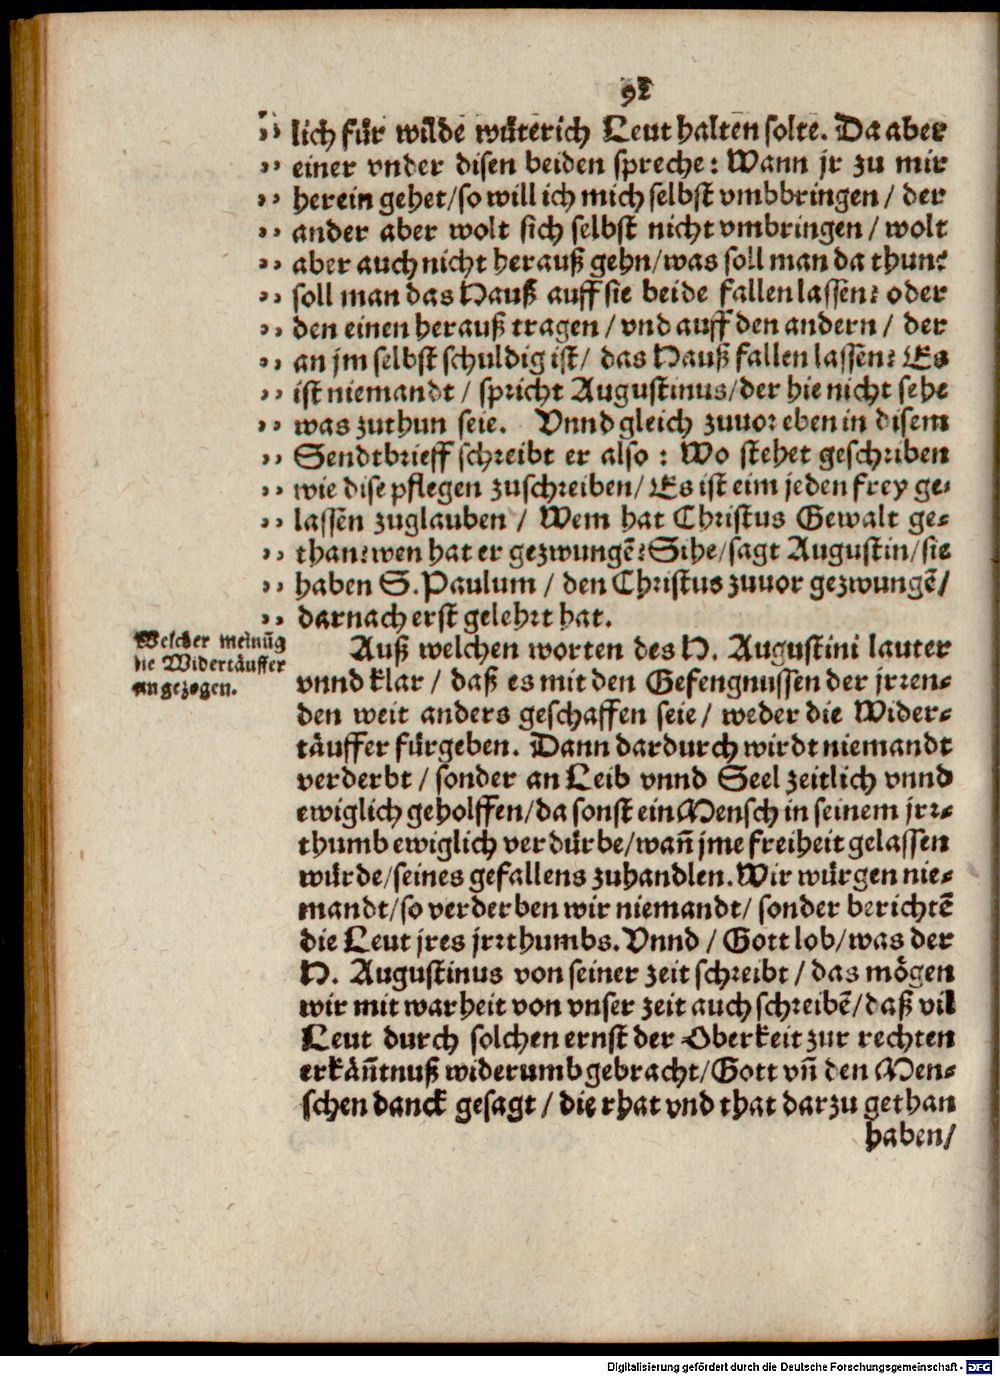 92
,, lich für wilde wüterich Leut halten solte. Da aber
,, einer vnder disen beiden spreche: Wann jr zu mir
,, herein gehet/so will ich mich selbst vmbbringen / der
,, ander aber wolt sich selbst nicht vmbringen / wolt
,, aber auch nicht herauß gehn/was soll man da thun?
,, soll man das Hauß auff sie beide fallen lassen? oder
,, den einen herauß tragen / vnd auff den andern / der
,, an jm selbst schuldig ist/ das Hauß fallen lassen? Es
,, ist niemandt / spricht Augustinus/der hie nicht sehe
,, was zuthun seie. Vnnd gleich zuuor eben in disem
,, Sendtbrieff schreibt er also : Wo stehet geschriben
,, wie dise pflegen zuschreiben/ Es ist eim jeden frey ge-
,, lassen zuglauben / Wem hat Christus Gewalt ge-
,, than? wen hat er gezwungẽ? Sihe/sagt Augustin/sie
,, haben S. Paulum / den Christus zuuor gezwungẽ/
,, darnach erst gelehrt hat.
Welcher meinũg
die Widertäuffer
angezogen.
Auß welchen worten des H. Augustini lauter
vnnd klar / daß es mit den Gefengnussen der jrren-
den weit anders geschaffen seie/ weder die Wider-
täuffer fürgeben. Dann dardurch wirdt niemandt
verderbt / sonder an Leib vnnd Seel zeitlich vnnd
ewiglich geholffen/da sonst ein Mensch in seinem jrr-
thumb ewiglich verdürbe/wañ jme freiheit gelassen
würde/seines gefallens zuhandlen. Wir würgen nie-
mandt/so verderben wir niemandt/ sonder berichtẽ
die Leut jres jrrthumbs. Vnnd / Gott lob/was der
H. Augustinus von seiner zeit schreibt / das mögen
wir mit warheit von vnser zeit auch schreibẽ/daß vil
Leut durch solchen ernst der Oberkeit zur rechten
erkäñtnuß widerumb gebracht/Gott vñ den Men-
schen danck gesagt / die rhat vnd that darzu gethan
haben/
Digitalisierung gefördert durch die Deutsche Forschungsgemeinschaft - DFG